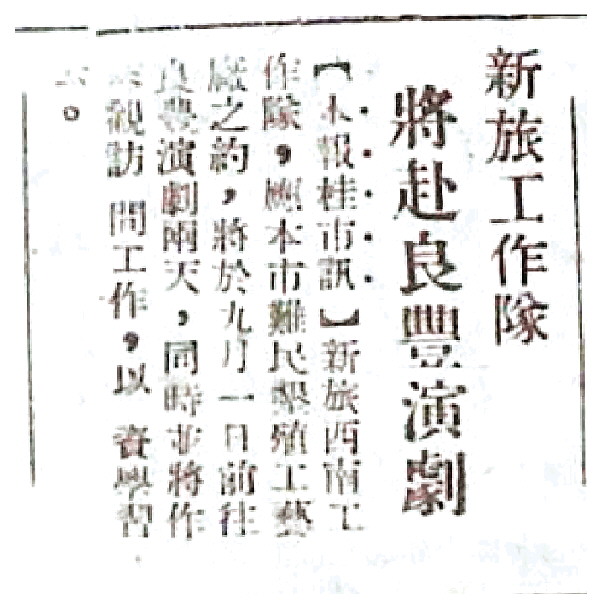 新旅工作隊
將赴良豐演劇
【本報桂市訊】新旅西南工
作隊，應本市難民墾殖工藝
廠之約，將於九月一日前往
良豐演劇兩天，同時並將作
觀訪問工作，以資學習
。